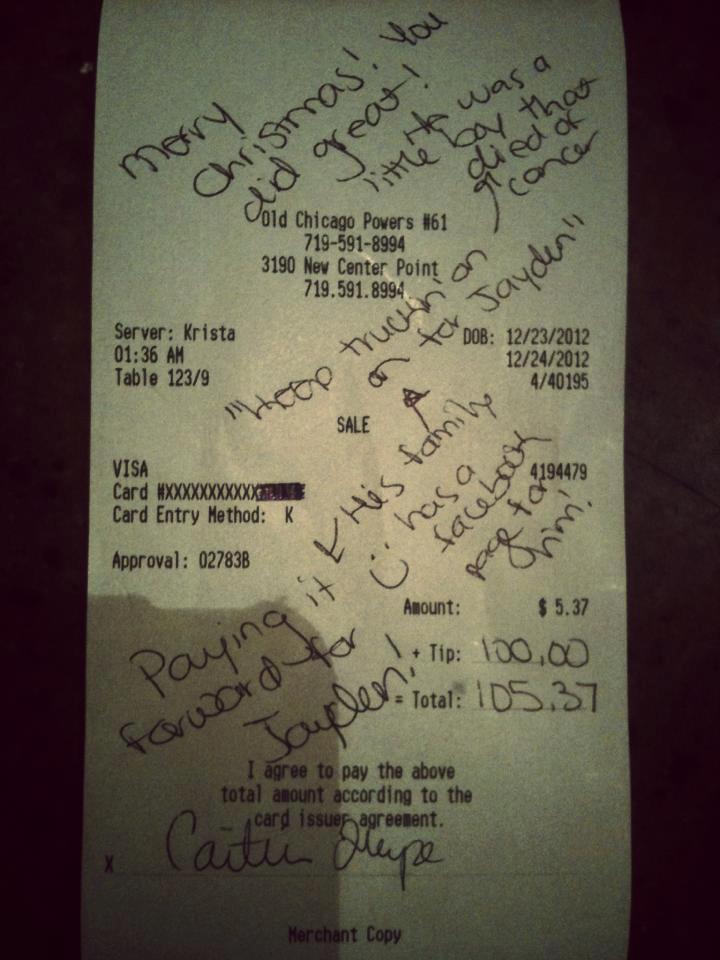 Merry
Christmas! You
did great!
He was a
little boy that
died of
cancer
Old Chicago Powers #61
719-591-8994
3190 New Center Point
719.591.8994
Server: Krista
DOB: 12/23/2012
01:36 AM
12/24/2012
Table 123/9
4/40195
"Keep truckin' on
on for Jayden"
SALE
VISA
4194479
Card #XXXXXXXXXXX
Card Entry Method: K
Approval: 02783B
His family
has a
facebook
page for
him!
Amount: $ 5.37
+ Tip: 100.00
= Total: 105.37
Paying it
forward for
Jayden!
I agree to pay the above
total amount according to the
card issuer agreement.
X
Merchant Copy